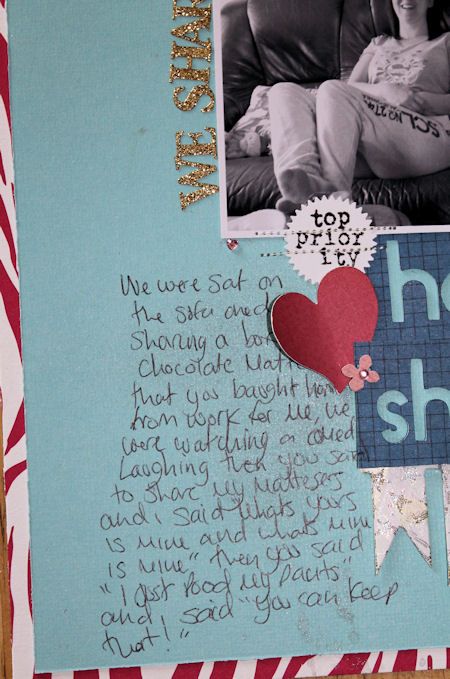 WE SHAR
SCL NO 274
top
prior
ity
ho
sh
We were sat on
the sofa and
sharing a bo
Chocolate Matte
that you baught home
from work for me, we
were watching a comed
Laughing then you said
to share my Mattesers
and i said whats yours
is mine and whats mine
is mine" then you said
"I just Pood my Pants"
and i said "you can keep
that!"